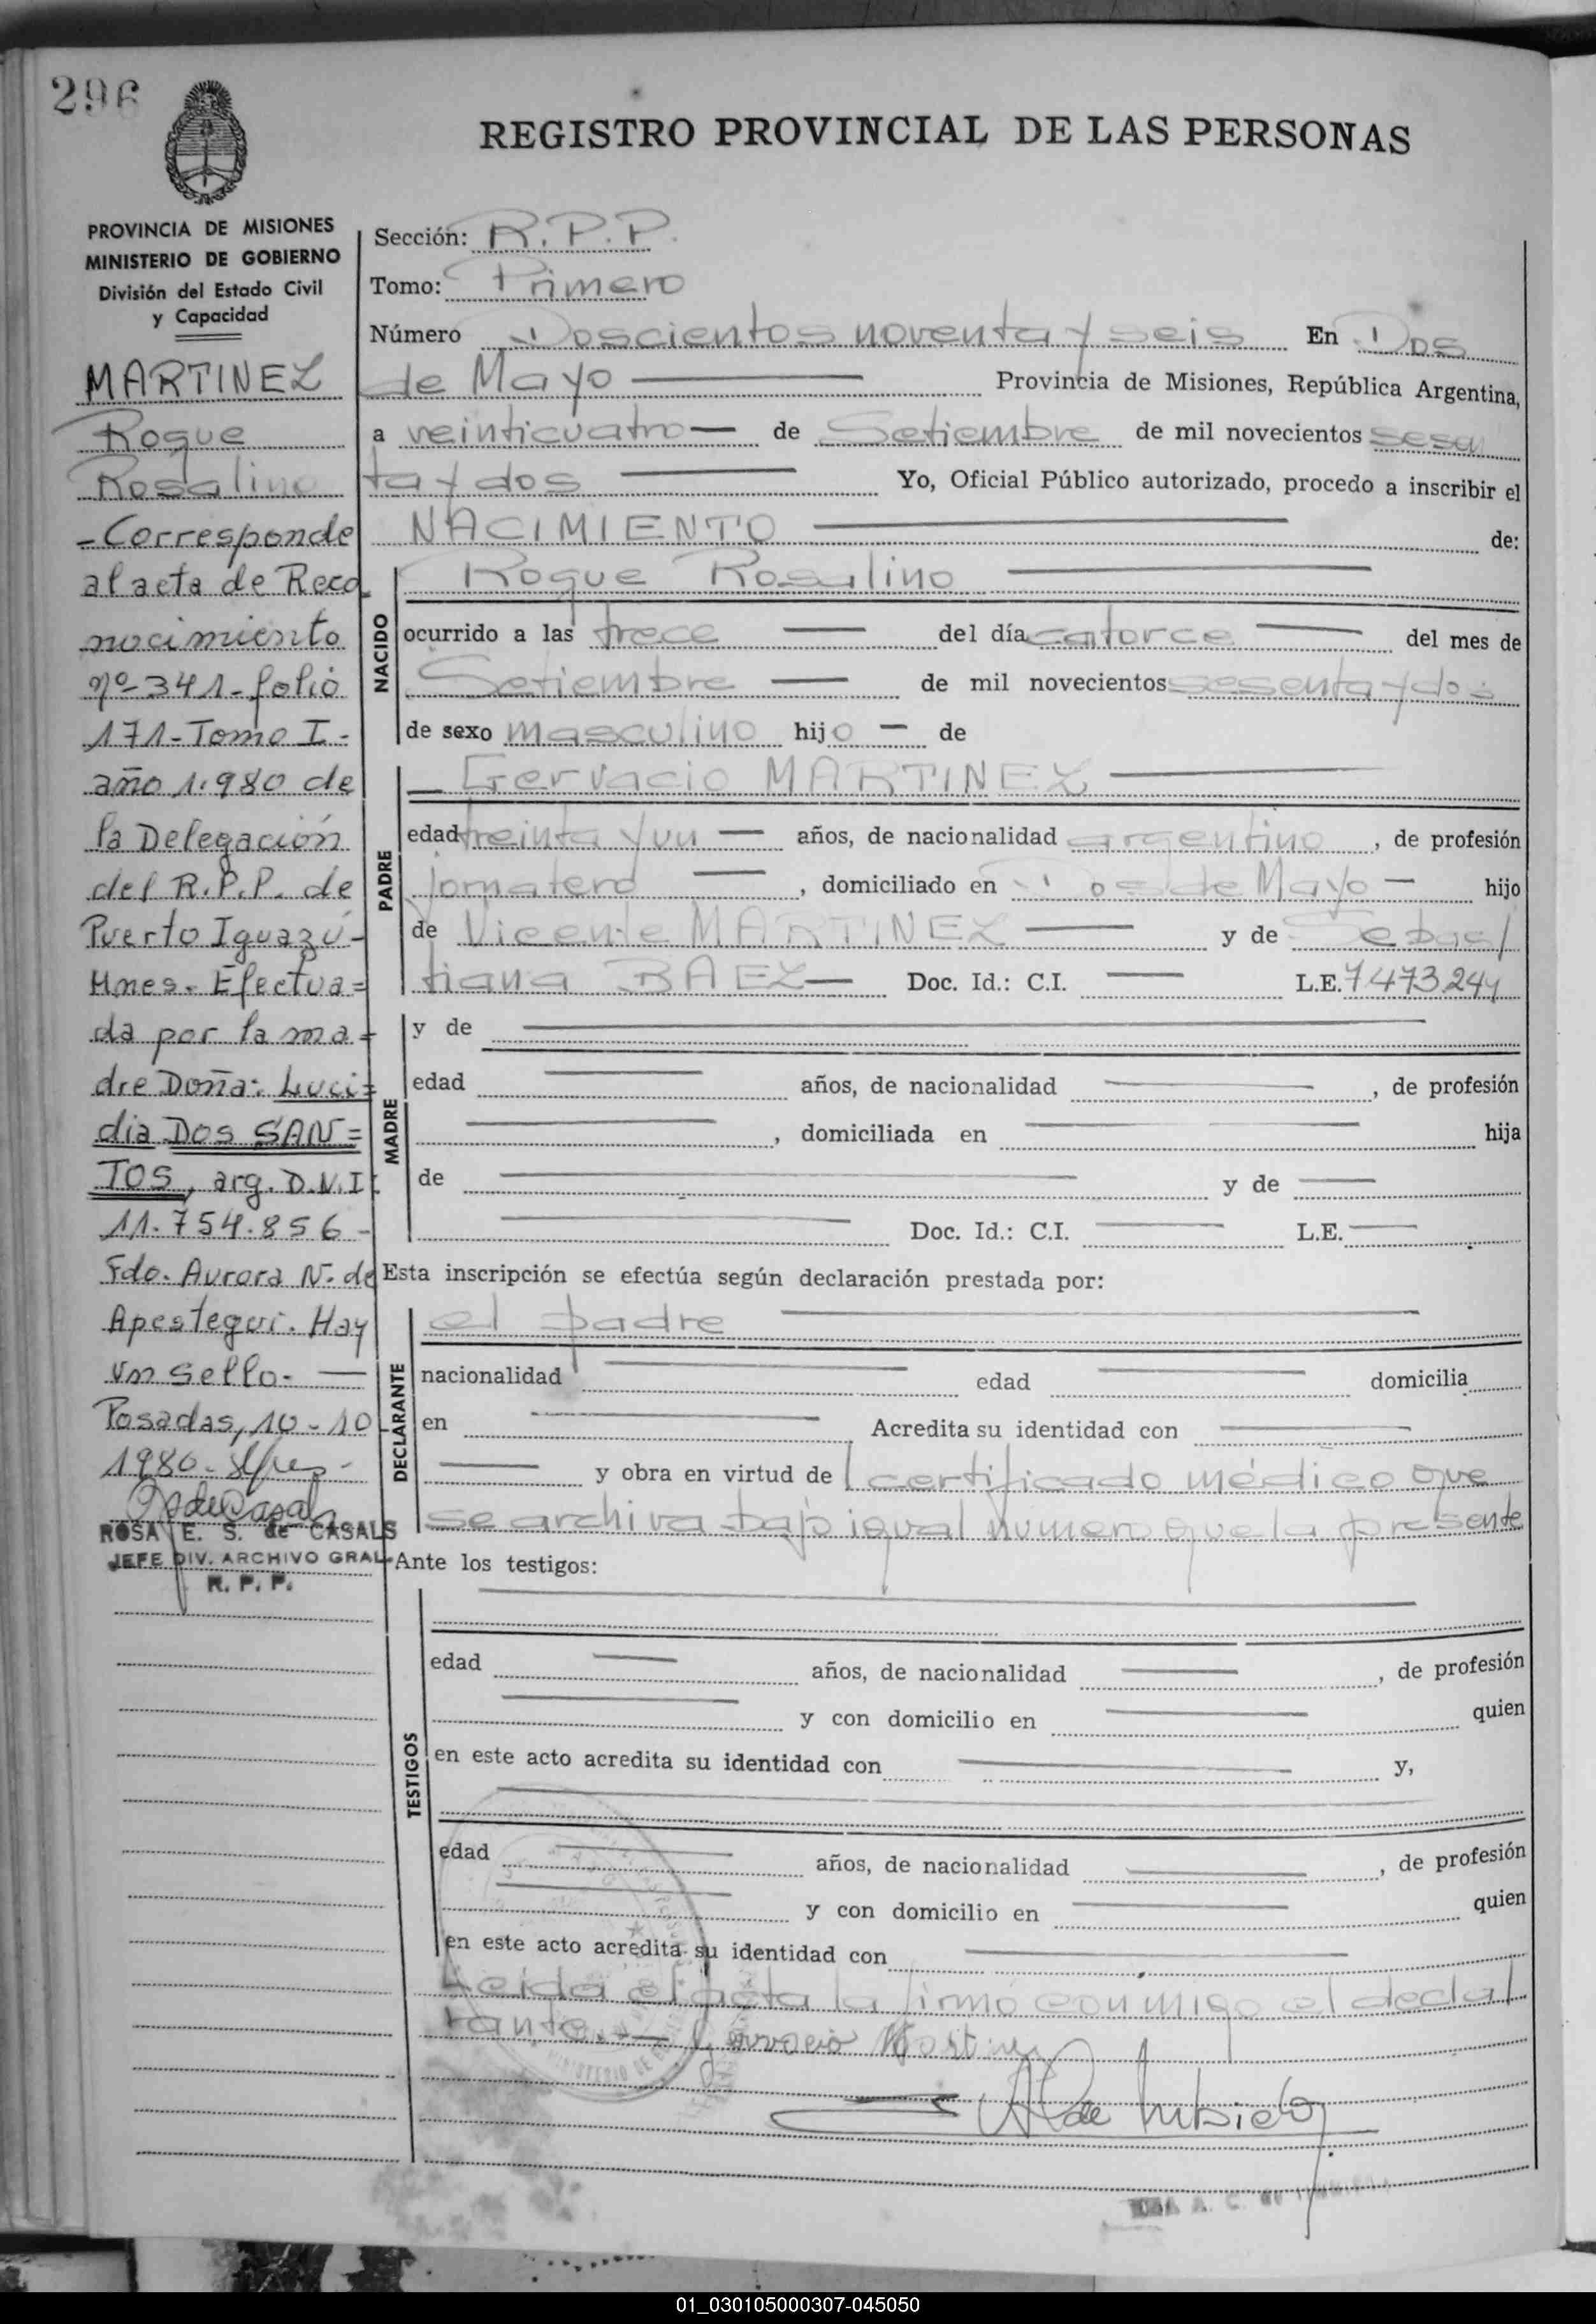 296
REGISTRO PROVINCIAL DE LAS PERSONAS
PROVINCIA DE MISIONES
MINISTERIO DE GOBIERNO
División del Estado Civil
y Capacidad
MARTINEZ
Roque
Rosalino
- Corresponde
al acta de Reco
nocimiento
nº 341- folio
171- Tomo I -
año 1.980 de
la Delegación
del R.P.P. de
Puerto Iguazú-
Mnes. Efectua=
da por la ma=
dre Doña: Luci=
dia DOS SAN=
TOS, arg. D.N.I.
11.754.856 -
Fdo. Aurora N. de
Apestegui. Hay
un sello. —
Posadas, 10-10
1980-
ROSA E. S. de CASALS
JEFE DIV. ARCHIVO GRAL.
R. P. P.
Sección: R.P.P.
Tomo: Primero
Número Doscientos noventa y seis En Dos
de Mayo — Provincia de Misiones, República Argentina,
a veinticuatro — de Setiembre de mil novecientos sesen
ta y dos — Yo, Oficial Público autorizado, procedo a inscribir el
NACIMIENTO — de:
NACIDO
Roque Rosalino —
ocurrido a las trece — del día catorce — del mes de
Setiembre — de mil novecientos sesenta y dos
de sexo masculino hijo — de
PADRE
— Gervacio MARTINEZ —
edad treinta y un — años, de nacionalidad argentino, de profesión
jornalero —, domiciliado en Dos de Mayo — hijo
de Vicente MARTINEZ — y de Sebas/
tiana BAEZ — Doc. Id.: C.I. — L.E. 7.473.244
MADRE
y de —
edad — años, de nacionalidad —, de profesión
—, domiciliada en — hija
de — y de —
— Doc. Id.: C.I. — L.E. —
Esta inscripción se efectúa según declaración prestada por:
DECLARANTE
el padre —
nacionalidad — edad — domicilia
en — Acredita su identidad con —
— y obra en virtud de l certificado médico que
se archiva bajo igual número que la presente
Ante los testigos:
TESTIGOS
—
edad — años, de nacionalidad —, de profesión
— y con domicilio en — quien
en este acto acredita su identidad con — y,
—
edad — años, de nacionalidad —, de profesión
— y con domicilio en — quien
en este acto acredita su identidad con —
Leída el acta la firmó conmigo el decla/
rante. — Gervacio Martinez
01_030105000307-045050